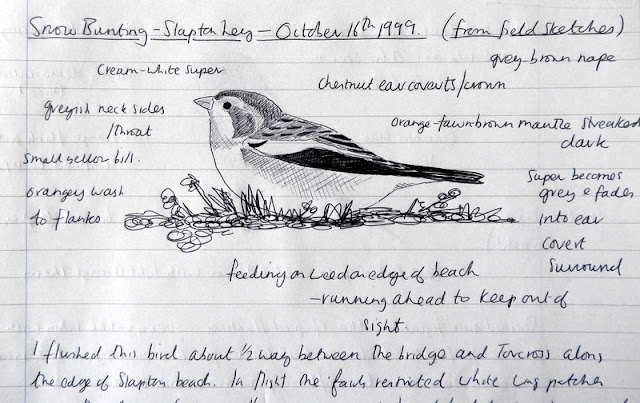 Snow Bunting - Slapton Ley - October 16th 1999. (from field sketches)
grey-brown nape
Cream-white super
Chestnut ear coverts/crown
greyish neck sides
/throat
Orange-tawn-brown mantle streaked
dark
Small yellow bill.
Super becomes
grey & fades
into ear
covert
Surround
orangey wash
to flanks
feeding on weed on edge of beach
- running ahead to keep out of
sight.
I flushed this bird about ½ way between the bridge and Torcross along
the edge of Slapton beach. In flight the fairly restricted white wing patches